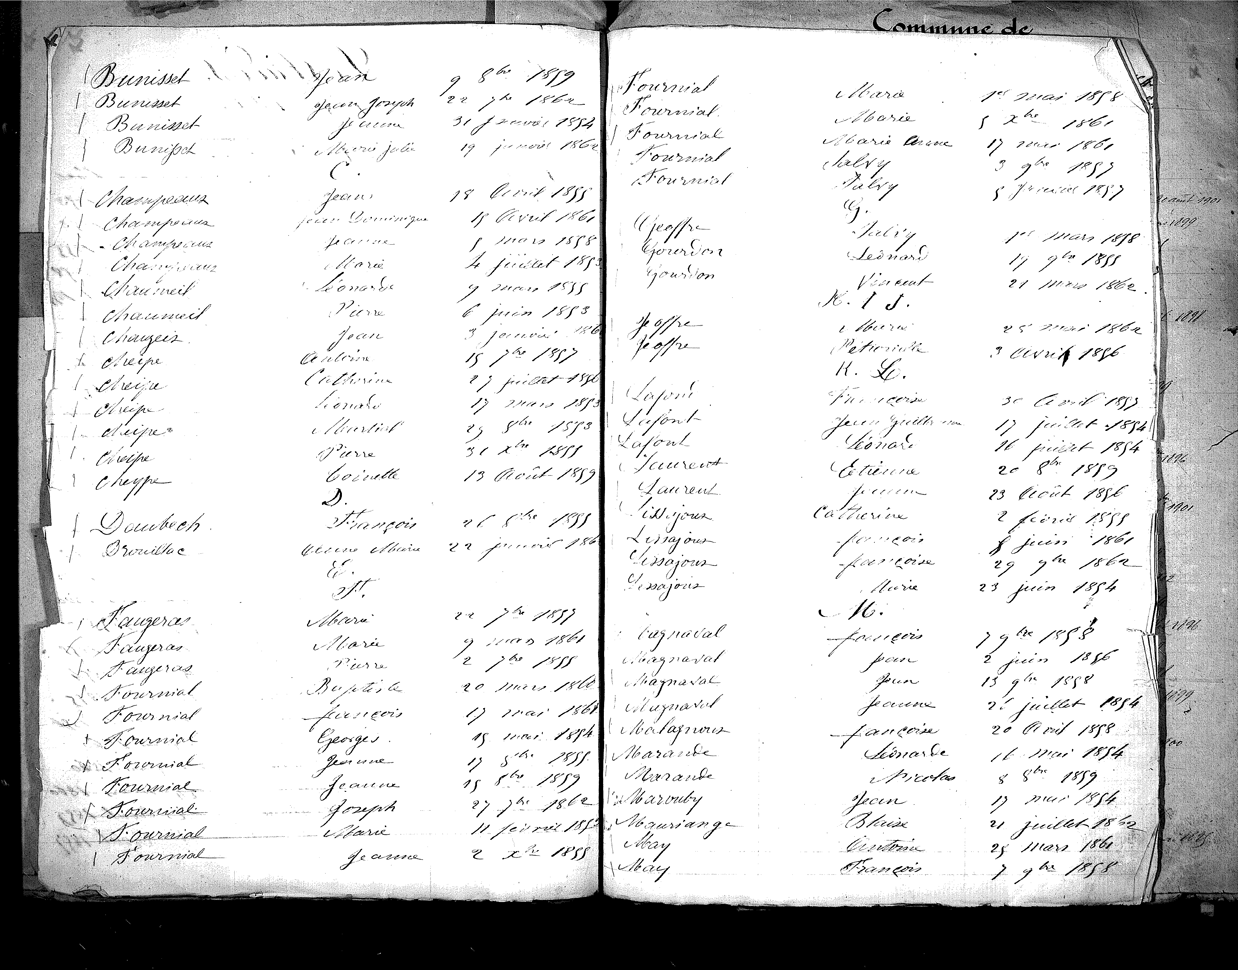 Commune de
Bunisset Jean 9 8bre 1859
Bunisset Jean Joseph 22 7bre 1862
Bunisset Jeanne 31 janvier 1854
Bunisset Marie julie 19 janvier 1862
C.
Champeaux Jean 18 Avril 1855
Champeaux Jean Dominique 15 Avril 1861
Champeaux Jeanne 5 mars 1858
Champeaux Marie 4 juillet 1853
Chaumeil Léonarde 9 mars 1855
Chaumeil Pierre 6 juin 1853
Chauzeix Jean 3 janvier 186
Cheipe Antoine 15 7bre 1857
Cheipe Catherine 27 juillet 1856
Cheipe Léonard 17 mars 1853
Cheipe Martial 29 8bre 1853
Cheipe Pierre 31 Xbre 1855
Cheyppe Toinette 13 Août 1859
D.
Daubech François 26 8bre 1855
Drouillac Anne Marie 22 janvier 186
E.
F.
Faugeras Marie 22 7bre 1857
Faugeras Marie 9 mars 1861
Faugeras Pierre 2 7bre 1855
Fournial Baptiste 20 mars 1860
Fournial françois 17 mai 1861
Fournial Georges 15 mai 1854
Fournial Jeanne 17 8bre 1855
Fournial Jeanne 15 8bre 1859
Fournial Joseph 27 7bre 1862
Fournial Marie 11 février 1852
Fournial Jeanne 2 Xbre 1855
Fournial Marie 1er mai 1858
Fournial Marie 5 Xbre 1861
Fournial Marie Anne 17 mai 1861
Fournial Salvy 3 9bre 1857
Fournial Salvy 5 janvier 1857
G.
Geoffre Salvy 1er mars 1858
Gourdon Léonard 17 9bre 1855
Gourdon Vincent 21 mars 1862
H. I J.
Jeoffre Marie 25 mai 1862
Jeoffre Pétronille 3 Avril 1856
K. L.
Lafont Françoise 30 Avril 1857
Lafont Jean Guillaume 17 juillet 1854
Lafont Léonard 16 juillet 1854
Laurent Etienne 20 8bre 1859
Laurent Jeanne 23 Août 1856
Lissajoux Catherine 2 février 1855
Lissajoux françois 8 juin 1861
Lissajoux françoise 29 9bre 1862
Lissajoux Marie 23 juin 1854
M.
Magnaval françois 7 9bre 1858
Magnaval Jean 2 juin 1856
Magnaval Jean 13 9bre 1858
Magnaval Jeanne juillet 1854
Malagnoux françoise 20 Avril 1858
Marande Léonarde 16 mai 1854
Marande Nicolas 8 8bre 1859
Marouby Jean 17 mai 1854
Mauriange Blaise 21 juillet 1862
May Antoine 25 mars 1861
May François 7 9bre 1858